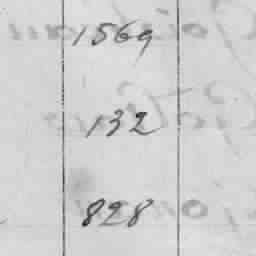 1569
132
828